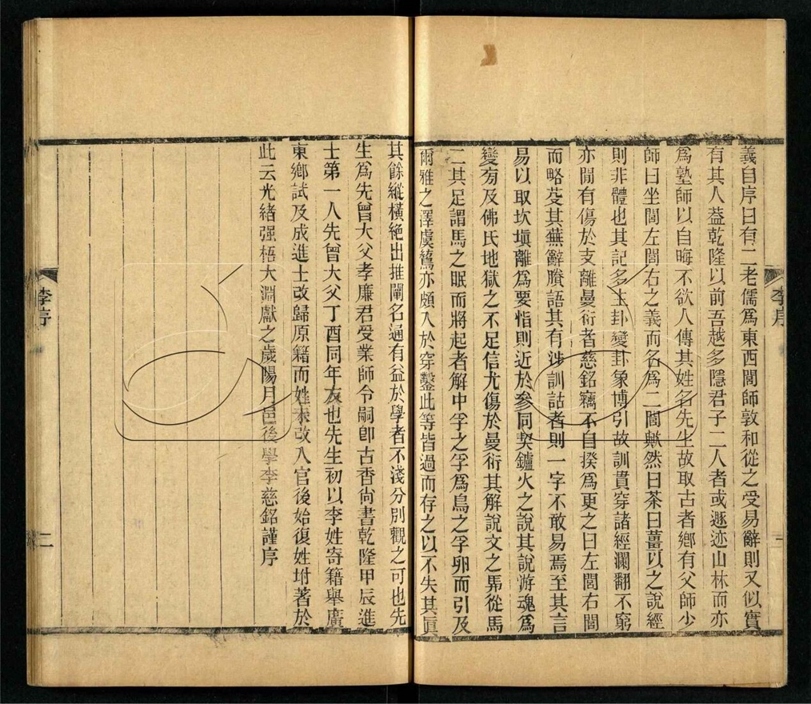 義自序曰有二老儒爲東西閭師敦和從之受易辭則又似實
有其人葢乾隆以前吾越多隱君子二人者或遯迹山林而亦
爲塾師以自晦不欲人傳其姓名先生故取古者鄉有父師少
師曰坐閭左閭右之義而名爲二閭歟然曰茶曰薑以之說經
則非體也其記多生卦變卦象博引故訓貫穿諸經瀾翻不窮
亦閒有傷於支離曼衍者慈銘竊不自揆爲更之曰左閭右閭
而略芟其蕪辭賸語其有涉訓詁者則一字不敢易焉至其言
易以取坎塡離爲要恉則近於參同契鑪火之說其說游魂爲
變旁及佛氏地獄之不足信尤傷於曼衍其解說文之馬從馬
二其足謂馬之眠而將起者解中孚之孚爲鳥之孚卵而引及
爾雅之澤虞鷽亦頗入於穿鑿此等皆過而存之以不失其眞
李序
一
其餘縱橫絶出推闡名通有益於學者不淺分别觀之可也先
生爲先曾大父孝廉君受業師令嗣卽古香尙書乾隆甲辰進
士第一人先曾大父丁酉同年友也先生初以李姓寄籍舉廣
東鄉試及成進士改歸原籍而姓未改入官後始復姓坿著於
此云光緒强梧大淵獻之歲陽月邑後學李慈銘謹序
李序
二